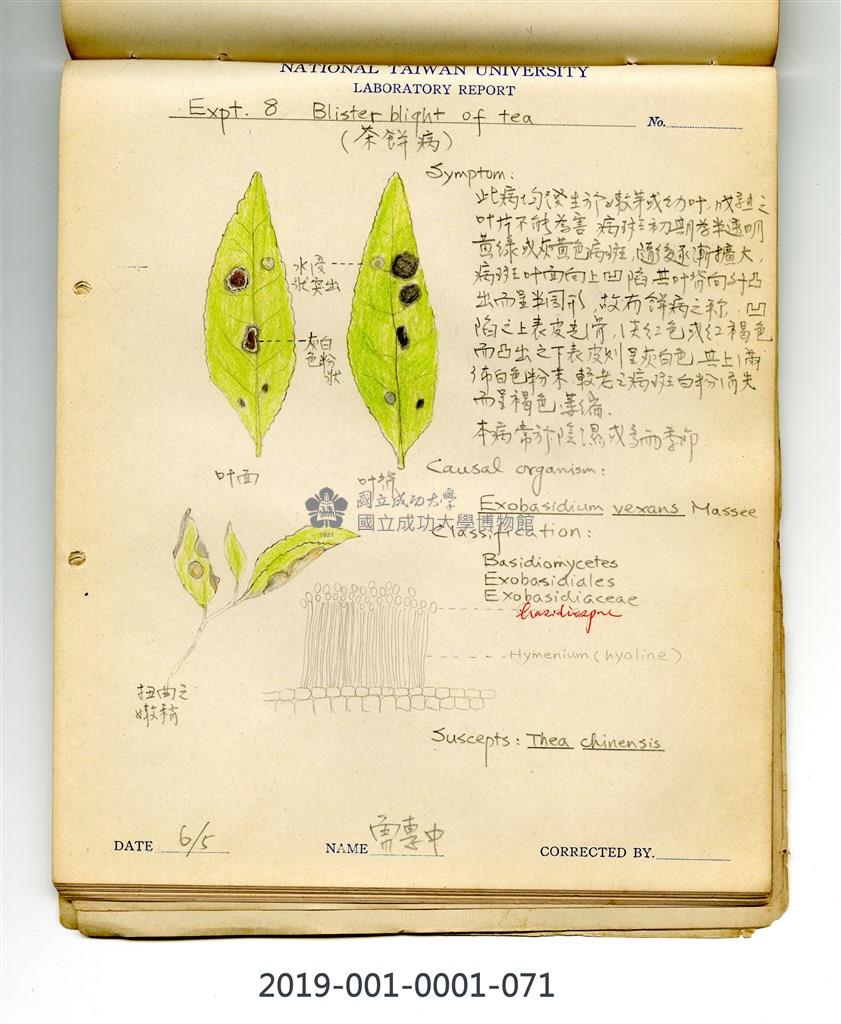 NATIONAL TAIWAN UNIVERSITY
LABORATORY REPORT
Expt. 8 Blister blight of tea
No.
(茶餅病)
Symptom:
此病均發生於嫩芽或幼叶,成熟之
叶片不能為害 病斑初期為半透明
黃綠或灰黃色病斑,隨後逐漸擴大,
病斑叶面向上凹陷其叶背向外凸
出而呈半圓形,故有餅病之称,凹
陷之上表皮光滑,淡紅色或紅褐色
而凸出之下表皮則呈灰白色,其上滿
佈白色粉末,較老之病斑白粉消失
而呈褐色萎縮.
本病常於陰濕或多雨季節
水浸
狀突出
灰白
色粉
狀
叶面
叶背
Causal organism:
Exobasidium vexans Massee
Classification:
Basidiomycetes
Exobasidiales
Exobasidiaceae
國立成功大學
國立成功大學博物館
1931
Hymenium (hyaline)
扭曲之
嫩梢
Suscepts: Thea chinensis
DATE 6/5
NAME
CORRECTED BY.
2019-001-0001-071